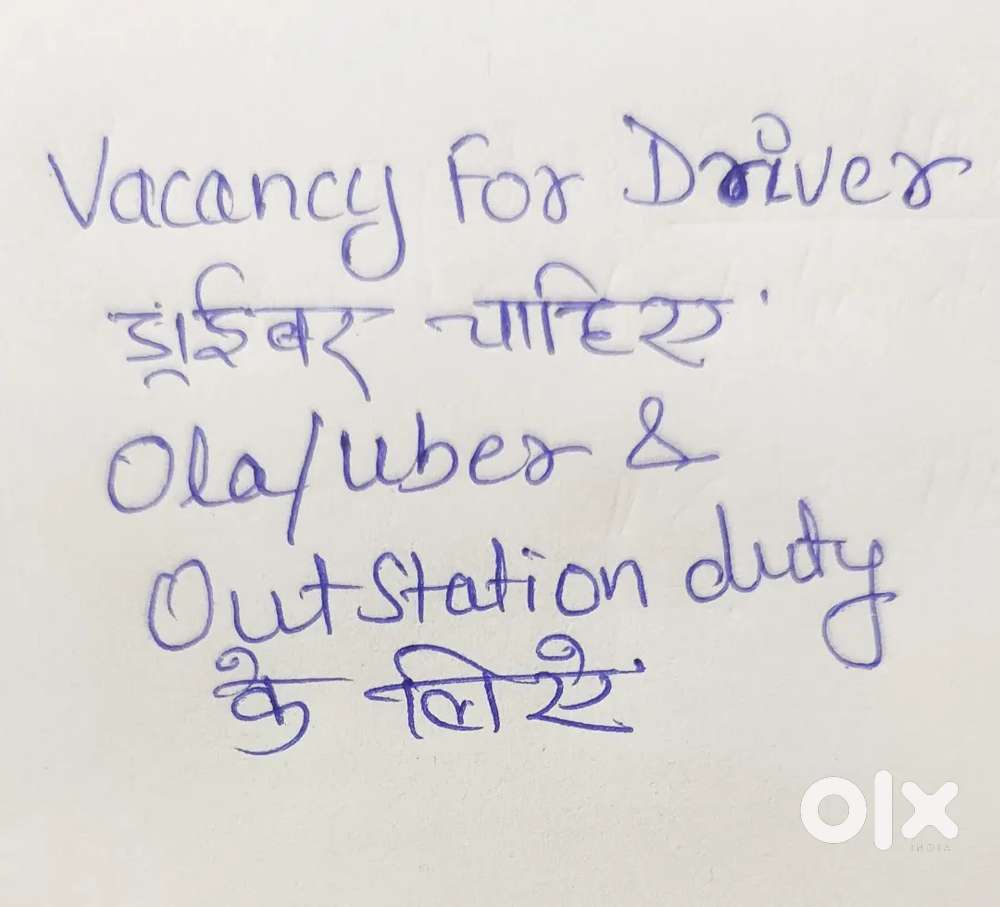 Vacancy For Driver
ड्राईबर चाहिए
Ola/Uber &
OutStation duty
के लिऐ
olx
INDIA